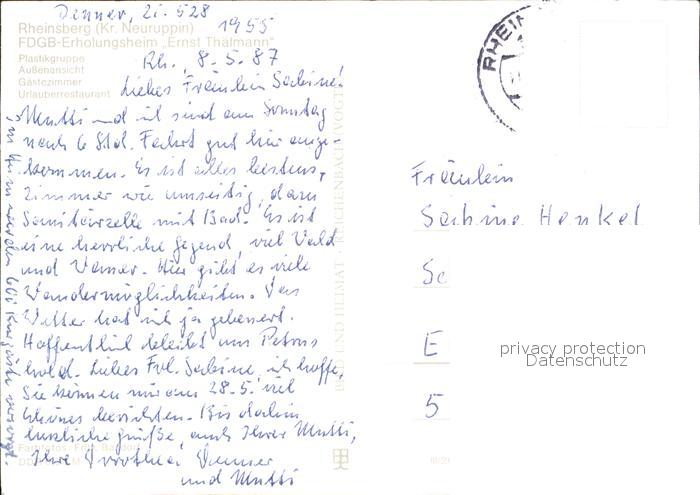 Denner, Zi. 528
1955
Rheinsberg (Kr. Neuruppin)
FDGB-Erholungsheim „Ernst Thälmann"
Plastikgruppe
Außenansicht
Gästezimmer
Urlauberrestaurant
Rh., 8.5.87
Liebes Fräulein Sabine!
Mutti und ich sind am Sonntag
nach 6 Std. Fahrt gut hier ange-
kommen. Es ist alles bestens,
Zimmer wie umseitig, dazu
Sanitärzelle mit Bad. Es ist
eine herrliche Gegend, viel Wald
und Wasser. Hier gibt es viele
Wandermöglichkeiten. Das
Wetter hat sich ja gebessert.
Hoffentlich bleibt uns Petrus
hold. Liebes Frl. Sabine, ich hoffe,
Sie können mir am 28.5. viel
Schönes berichten. Bis dahin
herzliche Grüße, auch Ihrer Mutti,
Ihre Dorothea Denner
und Mutti
werden 660 versorgt.
BILD UND HEIMAT · REICHENBACH (VOGTL)
RHEIN
Fräulein
Sabine Henkel
Sc
E
5
privacy protection
Datenschutz